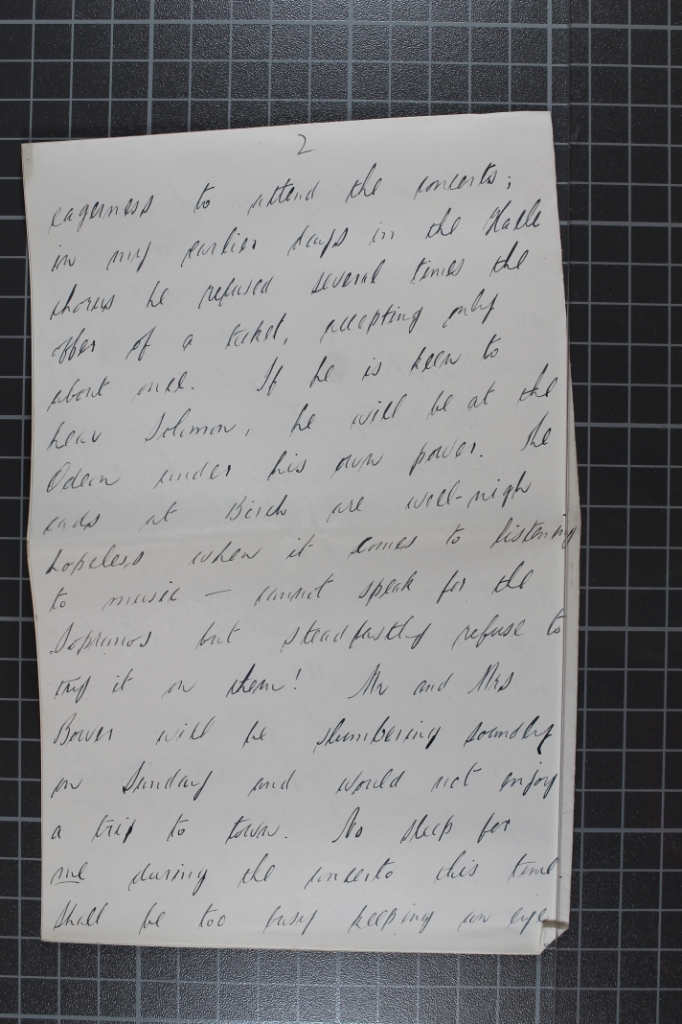 2
eagerness to attend the concerts;
in my earlier days in the Halle
chorus he refused several times the
offer of a ticket, accepting only
about once. If he is keen to
hear Solomon, he will be at the
Odeon under his own power. The
lads at Birch are well-nigh
hopeless when it comes to listening
to music — cannot speak for the
Sopranos but steadfastly refuse to
try it on them! Mr and Mrs
Bower will be slumbering soundly
on Sunday and would not enjoy
a trip to town. No sleep for
me during the concerto this time.
Shall be too busy keeping an eye